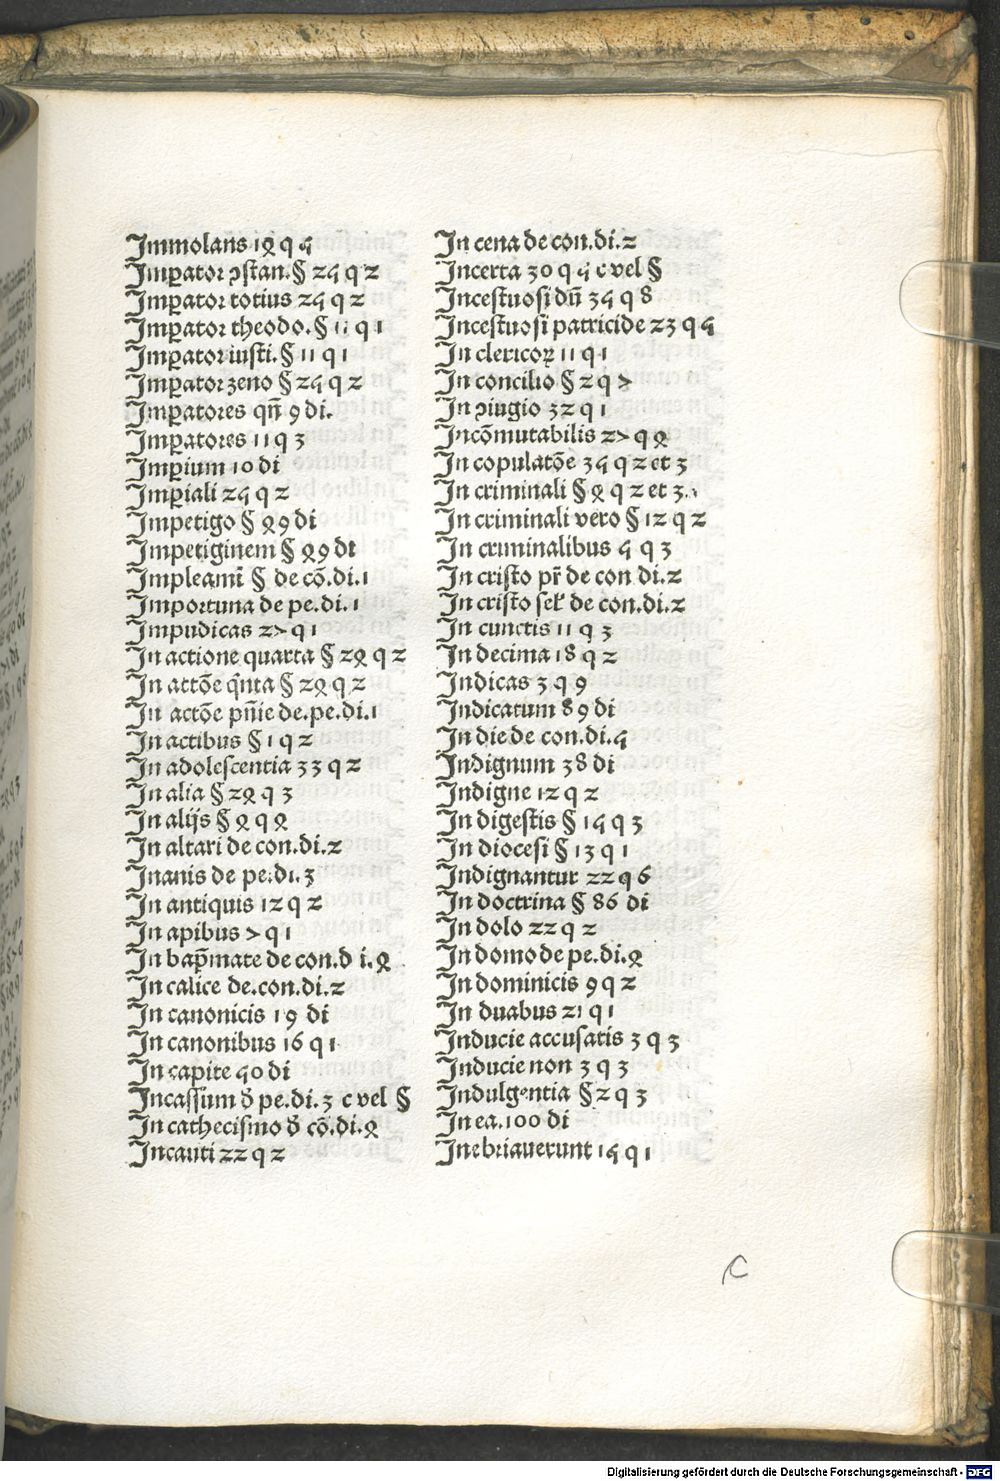 Immolans 14 q 5
Imꝑator ꝯstan. § 25 q 2
Imꝑator totius 25 q 2
Imꝑator theodo. § 11 q 1
Imꝑator iusti. § 11 q 1
Imꝑator zeno § 25 q 2
Imꝑatores qn̄ 9 di.
Imꝑatores 11 q 3
Imꝑium 10 di
Imꝑiali 25 q 2
Impetigo § 49 di
Impetiginem § 49 di
Impleamī § de cō.di.1
Importuna de pe.di.1
Impudicas 27 q 1
In actione quarta § 24 q 2
In attōe q̄nta § 24 q 2
In actōe pn̄ie de.pe.di.1
In actibus § 1 q 2
In adolescentia 33 q 2
In alia § 24 q 3
In alijs § 4 q 4
In altari de con.di.2
Inanis de pe.di.3
In antiquis 12 q 2
In apibus 7 q 1
In bap̄mate de con.d i.4
In calice de.con.di.2
In canonicis 19 di
In canonibus 16 q 1
In capite 50 di
Incassum đ pe.di.3 c vel §
In cathecismo đ cō.di.4
Incauti 22 q 2
In cena de con.di.2
Incerta 30 q 5 c vel §
Incestuosi dn̄ 35 q 8
Incestuosi patricide 23 q 5
In clericoꝝ 11 q 1
In concilio § 2 q 7
In ꝯiugio 32 q 1
Incōmutabilis 27 q 4
In copulatōe 35 q 2 et 3
In criminali § 4 q 2 et 3.
In criminali vero § 12 q 2
In criminalibus 5 q 3
In cristo pr̄ de con di.2
In cristo seł de con.di.2
In cunctis 11 q 3
In decima 18 q 2
Indicas 3 q 9
Indicatum 89 di
In die de con.di.5
Indignum 38 di
Indigne 12 q 2
In digestis § 15 q 3
In diocesi § 13 q 1
Indignantur 22 q 6
In doctrina § 86 di
In dolo 22 q 2
In domo de pe.di.4
In dominicis 9 q 2
In duabus 21 q 1
Inducie accusatis 3 q 3
Inducie non 3 q 3
Indulgentia § 2 q 3
In ea.100 di
Inebriaverunt 15 q 1
C
Digitalisierung gefördert durch die Deutsche Forschungsgemeinschaft - DFG